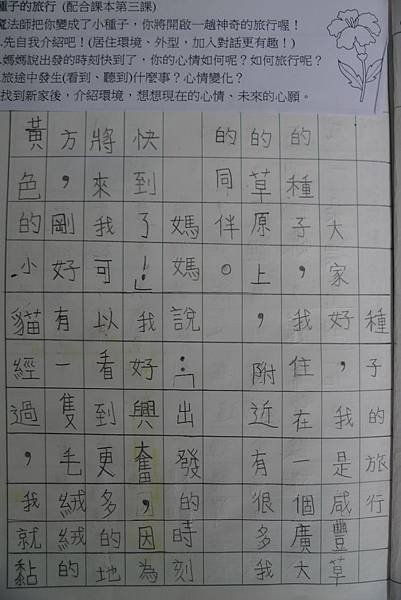 種子的旅行 (配合課本第三課)
魔法師把你變成了小種子，你將開啟一趟神奇的旅行喔！
.先自我介紹吧！(居住環境、外型，加人對話更有趣！)
.媽媽說出發的時刻快到了，你的心情如何呢？如何旅行呢？
.旅途中發生(看到、聽到)什麼事？心情變化？
找到新家後，介紹環境，想想現在的心情、未來的心願。
種子的旅行
大家好，我是咸豐草
的種子，我住在一個廣大
的草原上，附近有很多我
的同伴。
媽媽說：「出發的時刻
快到了！」我好興奮，因為
將來我可以看到更多的地
方，剛好有一隻毛絨絨的
黃色的小貓經過，我就黏